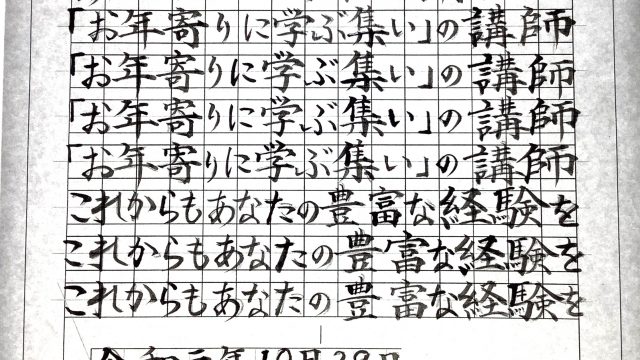 「お年寄りに学ぶ集い」の講師
「お年寄りに学ぶ集い」の講師
「お年寄りに学ぶ集い」の講師
「お年寄りに学ぶ集い」の講師
これからもあなたの豊富な経験を
これからもあなたの豊富な経験を
これからもあなたの豊富な経験を
令和元年10月29日